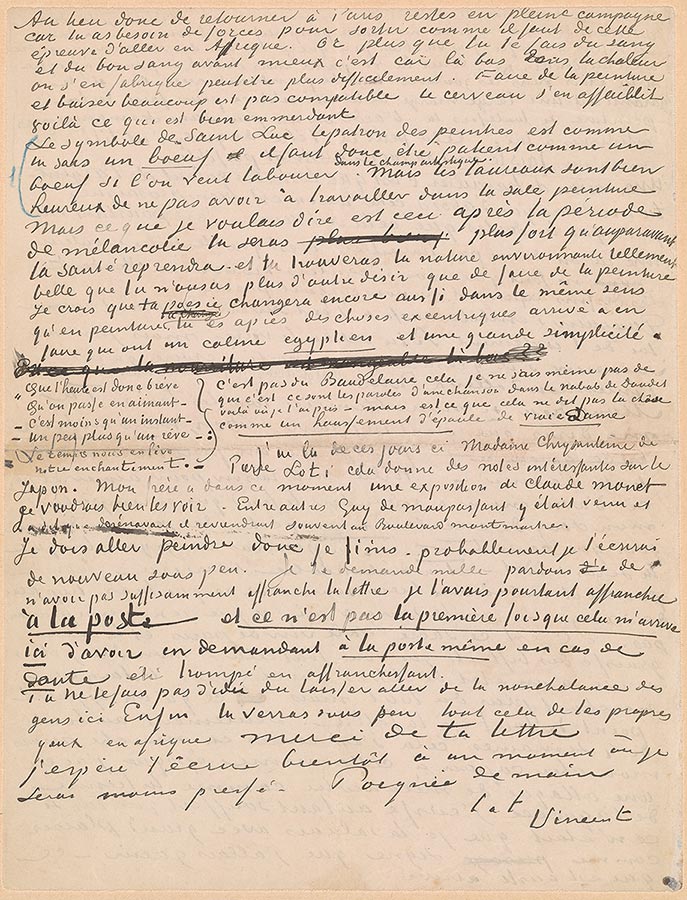 Au lieu donc de retourner à Paris restes en pleine campagne
car tu as besoin de forces pour sortir comme il faut de cette
épreuve d'aller en Afrique. Or plus que tu te fais du sang
et du bon sang avant mieux c'est car là bas dans la chaleur
on s'en fabrique peutêtre plus difficilement. Faire de la peinture
et baiser beaucoup est pas compatible le cerveau s'en affaiblit
voilà ce qui est bien emmerdant
Le symbole de Saint Luc le patron des peintres est comme
tu sais un boeuf il faut donc être patient comme un
boeuf si l'on veut labourer dans le champ artistique. Mais les taureaux sont bien
heureux de ne pas avoir à travailler dans la sale peinture
Mais ce que je voulais dire est ceci après la période
de mélancolie tu seras plus fort qu'auparavant
ta santé reprendra - et tu trouveras la nature environnante tellement
belle que tu n'auras plus d'autre désir que de faire de la peinture
Je crois que ta poésie changera encore aussi dans le même sens
qu'en peinture, tu es après des choses excentriques arrivé a en
faire qui ont un calme egyptien et une grande simplicité.
"Que l'heure est donc brève
Qu'on passe en aimant -
- C'est moins qu'un instant -
- un peu plus qu'un rêve -
Le temps nous enlève
notre enchantement. -
C'est pas du Baudelaire cela je ne sais même pas de
qui c'est ce sont les paroles d'une chanson dans le nabab de Daudet
voilà où je l'ai pris - mais est ce que cela ne dit pas la chose
comme un haussement d'épaule de vraie Dame
J'ai lu de ces jours ci Madame Chrysanteme de
Pierre Loti cela donne des notes intéressantes sur le
Japon. Mon frère a dans ce moment une exposition de Claude Monet
je voudrais bien les voir - Entre autres Guy de maupassant y était venu et
a dit que desormais il reviendrait souvent au Boulevard montmartre.
Je dois aller peindre donc je finis - probablement je t'écrirai
de nouveau sous peu. Je te demande mille pardons de
n'avoir pas suffisamment affranchi la lettre je l'avais pourtant affranchie
à la poste et ce n'est pas la première fois que cela m'arrive
ici d'avoir en demandant à la poste même en cas de
doute été trompé en affranchissant.
Tu ne te fais pas d'idée du laisser aller de la nonchalance des
gens ici Enfin tu verras sous peu tout cela de tes propres
yeux en afrique merci de ta lettre
j'espère t'écrire bientôt à un moment où je
serai moins pressé - Poignée de main
t. à t
Vincent